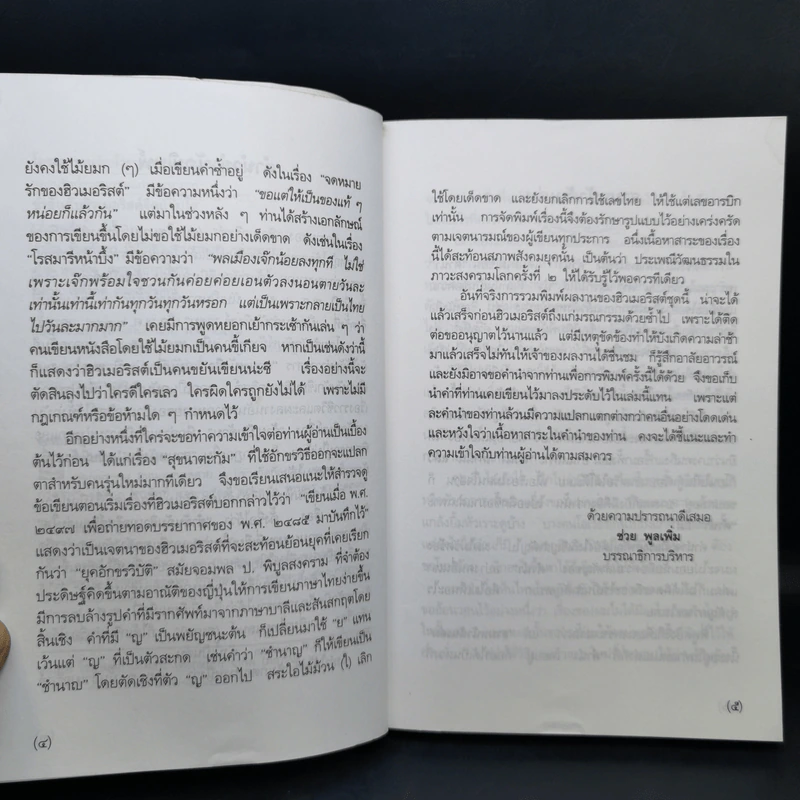 ยังคงใช้ไม้ยมก (ๆ) เมื่อเขียนคำซ้ำอยู่ ดังในเรื่อง “จดหมาย
รักของฮิวเมอริสต์” มีข้อความหนึ่งว่า “ขอแต่ให้เป็นของแท้ ๆ
หน่อยก็แล้วกัน” แต่มาในช่วงหลัง ๆ ท่านได้สร้างเอกลักษณ์
ของการเขียนขึ้นโดยไม่ขอใช้ไม้ยมกอย่างเด็ดขาด ดังเช่นในเรื่อง
“โรสมารีหน้าบึ้ง” มีข้อความว่า “พลเมืองเจ๊กน้อยลงทุกที ไม่ใช่
เพราะเจ๊กพร้อมใจชวนกันค่อยค่อยเอนตัวลงนอนตายวันละ
เท่านั้นเท่านี้เท่ากันทุกวันทุกวันหรอก แต่เป็นเพราะกลายเป็นไทย
ไปวันละมากมาก” เคยมีการพูดหยอกเย้ากระเซ้ากันเล่น ๆ ว่า
คนเขียนหนังสือโดยใช้ไม้ยมกเป็นคนขี้เกียจ หากเป็นเช่นดังว่านี้
ก็แสดงว่าฮิวเมอริสต์เป็นคนขยันเขียนน่ะซี เรื่องอย่างนี้จะ
ตัดสินลงไปว่าใครดีใครเลว ใครผิดใครถูกยังไม่ได้ เพราะไม่มี
กฎเกณฑ์หรือข้อห้ามใด ๆ กำหนดไว้
อีกอย่างหนึ่งที่ใคร่จะขอทำความเข้าใจต่อท่านผู้อ่านเป็นเบื้อง
ต้นไว้ก่อน ได้แก่เรื่อง “สุขนาตะกัม” ที่ใช้อักขรวิธีออกจะแปลก
ตาสำหรับคนรุ่นใหม่มากทีเดียว จึงขอเรียนเสนอแนะให้สำรวจดู
ข้อเขียนตอนเริ่มเรื่องที่ฮิวเมอริสต์บอกกล่าวไว้ว่า “เขียนเมื่อ พ.ศ.
๒๔๙๗ เพื่อถ่ายทอดบรรยากาศของ พ.ศ. ๒๔๘๕ มาบันทึกไว้”
แสดงว่าเป็นเจตนาของฮิวเมอริสต์ที่จะสะท้อนย้อนยุคที่เคยเรียก
กันว่า “ยุคอักขรวิบัติ” สมัยจอมพล ป. พิบูลสงคราม ที่จำต้อง
ประดิษฐ์คิดขึ้นตามอาณัติของญี่ปุ่นให้การเขียนภาษาไทยง่ายขึ้น
มีการลบล้างรูปคำที่มีรากศัพท์มาจากภาษาบาลีและสันสกฤตโดย
สิ้นเชิง คำที่มี “ญ” เป็นพยัญชนะต้น ก็เปลี่ยนมาใช้ “ย” แทน
เว้นแต่ “ญ” ที่เป็นตัวสะกด เช่นคำว่า “ชำนาญ” ก็ให้เขียนเป็น
“ชำนาญ” โดยตัดเชิงที่ตัว “ญ” ออกไป สระไอไม้ม้วน (ใ) เลิก
(๔)
ใช้โดยเด็ดขาด และยังยกเลิกการใช้เลขไทย ให้ใช้แต่เลขอารบิก
เท่านั้น การจัดพิมพ์เรื่องนี้จึงต้องรักษารูปแบบไว้อย่างเคร่งครัด
ตามเจตนารมณ์ของผู้เขียนทุกประการ อนึ่งเนื้อหาสาระของเรื่อง
นี้ได้สะท้อนสภาพสังคมยุคนั้น เป็นต้นว่า ประเพณีวัฒนธรรมใน
ภาวะสงครามโลกครั้งที่ ๒ ให้ได้รับรู้ไว้พอควรทีเดียว
อันที่จริงการรวมพิมพ์ผลงานของฮิวเมอริสต์ชุดนี้ น่าจะได้
แล้วเสร็จก่อนฮิวเมอริสต์ถึงแก่มรณกรรมด้วยซ้ำไป เพราะได้ติด
ต่อขออนุญาตไว้นานแล้ว แต่มีเหตุขัดข้องทำให้บังเกิดความล่าช้า
มาแล้วเสร็จไม่ทันให้เจ้าของผลงานได้ชื่นชม ก็รู้สึกอาลัยอาวรณ์
และยังมิอาจขอคำนำจากท่านเพื่อการพิมพ์ครั้งนี้ได้ด้วย จึงขอเก็บ
นำคำที่ท่านเคยเขียนไว้มาลงประดับไว้ในเล่มนี้แทน เพราะแต่
ละคำนำของท่านล้วนมีความแปลกแตกต่างกว่าคนอื่นอย่างโดดเด่น
และหวังใจว่าเนื้อหาสาระในคำนำของท่าน คงจะได้ชี้แนะและทำ
ความเข้าใจกับท่านผู้อ่านได้ตามสมควร
ด้วยความปรารถนาดีเสมอ
ช่วย พูลเพิ่ม
บรรณาธิการบริหาร
(๕)